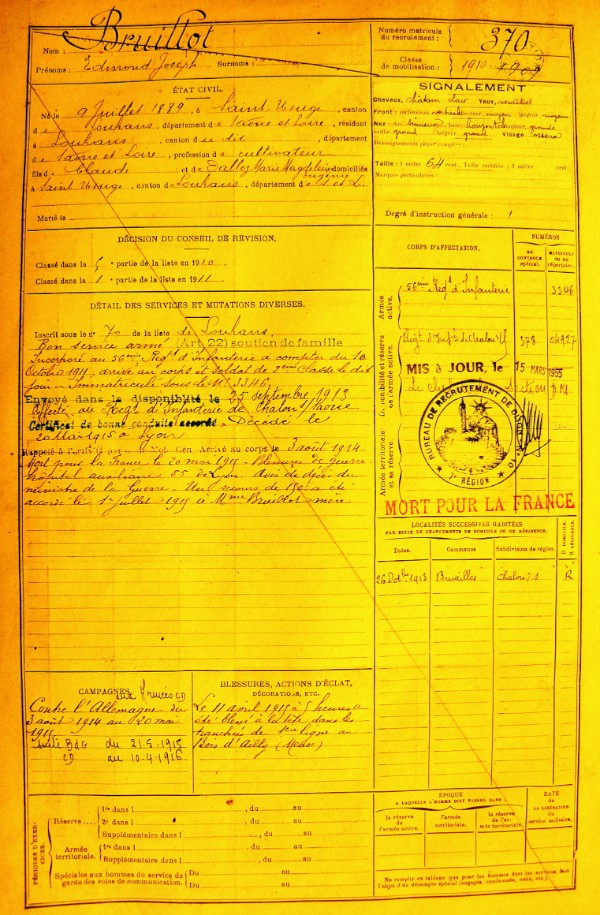 Nom : Bruillot
Prénoms : Edmond Joseph Surnoms :
Numéro matricule
du recrutement : 370
Classe
de mobilisation : 1910
ÉTAT CIVIL.
Né le 9 Juillet 1889, à Saint Usuge, canton
de Louhans, département de Saône et Loire, résidant
à Louhans, canton du dit, département
de Saône et Loire, profession de cultivateur
fils de Claude et de Marie domiciliés
à Saint Usuge, canton de Louhans, département de S et L.
Marié le
SIGNALEMENT
Cheveux, châtain clair Yeux,
Front : moyen
Nez : grande
grand Visage
Renseignements physiq. compl. :
Taille : 1 mètre 64 cent. Taille rectifiée : 1 mètre cent.
Marques particulières :
Degré d'instruction générale : 1
DÉCISION DU CONSEIL DE REVISION.
Classé dans la 5e partie de la liste en 1910
Classé dans la 1 partie de la liste en 1911
DÉTAIL DES SERVICES ET MUTATIONS DIVERSES.
Inscrit sous le n° 70 de la liste de Louhans.
Bon service armé (Art. 22) soutien de famille
Incorporé au 56ème Regt d'Infanterie à compter du 10
Octobre 1911, arrivé au corps et soldat de 2ème Classe le dit
jour - Immatriculé sous le N° 3346.
Envoyé dans la disponibilité le 25 septembre 1913
Affecté au Regt d'Infanterie de Chalon s/ Saône
Certificat de bonne conduite accordé. Décédé le
20 Mai 1915 à Lyon
Rappelé à l'activité Arrivé au corps le 3 août 1914.
Mort pour la France le 20 mai 1915 - Blessures de guerre
hôpital auxiliaire 55 de Lyon Avis de décès du
ministre de la Guerre. Un secours de 150f a été
accordé le 1er juillet 1915 à Mme Bruillot mère
CORPS D'AFFECTATION.
NUMÉROS
AU
CONTRÔLE
spécial.
MATRICULE
OU AU
répertoire.
Armée
active.
56ème Regt d'Infanterie 3346
Disponibilité et réserve
de l'armée active.
Regt d'Infie de Chalon 378
MIS à JOUR, le 15 MARS 1935
Armée territoriale
et sa réserve.
BUREAU DE RECRUTEMENT DE
RÉGION
MORT POUR LA FRANCE
LOCALITÉS SUCCESSIVES HABITÉES
PAR SUITE DE CHANGEMENTS DE DOMICILE OU DE RÉSIDENCE.
Dates. Communes Subdivision de région. D. DOMICILE. R. RÉSIDENCE.
26 1913 Bruailles Chalon s/S R
CAMPAGNES.
aux Armées CD
Contre l'Allemagne du
3 août 1914 au 20 mai
1915
du 21.5.1915
CD au 10.4.1916
BLESSURES, ACTIONS D'ÉCLAT,
DÉCORATIONS, ETC.
Le 11 avril 1915 à 5 heures a
été blessé à la tête dans les
tranchées de 1ère ligne au
Bois d'Ailly (Meuse)
PÉRIODES D'EXERCICES.
Réserve
1re dans l , du au
2e dans l , du au
Supplémentaire dans l , du au
Armée
territoriale.
1re dans l , du au
Supplémentaire dans l , du au
Spéciales aux hommes du service de
garde des voies de communication.
Du au
Du au
ÉPOQUE
A LAQUELLE L'HOMME DOIT PASSER DANS
la réserve
de
l'armée active.
l'armée
territoriale.
la réserve
de l'ar-
mée territoriale.
DATE
DE LA LIBÉRATION
du
service militaire.
Ne remplir ce tableau que pour les hommes dont les services font
l'objet d'un décompte spécial (engagés, condamnés, omis, etc.)